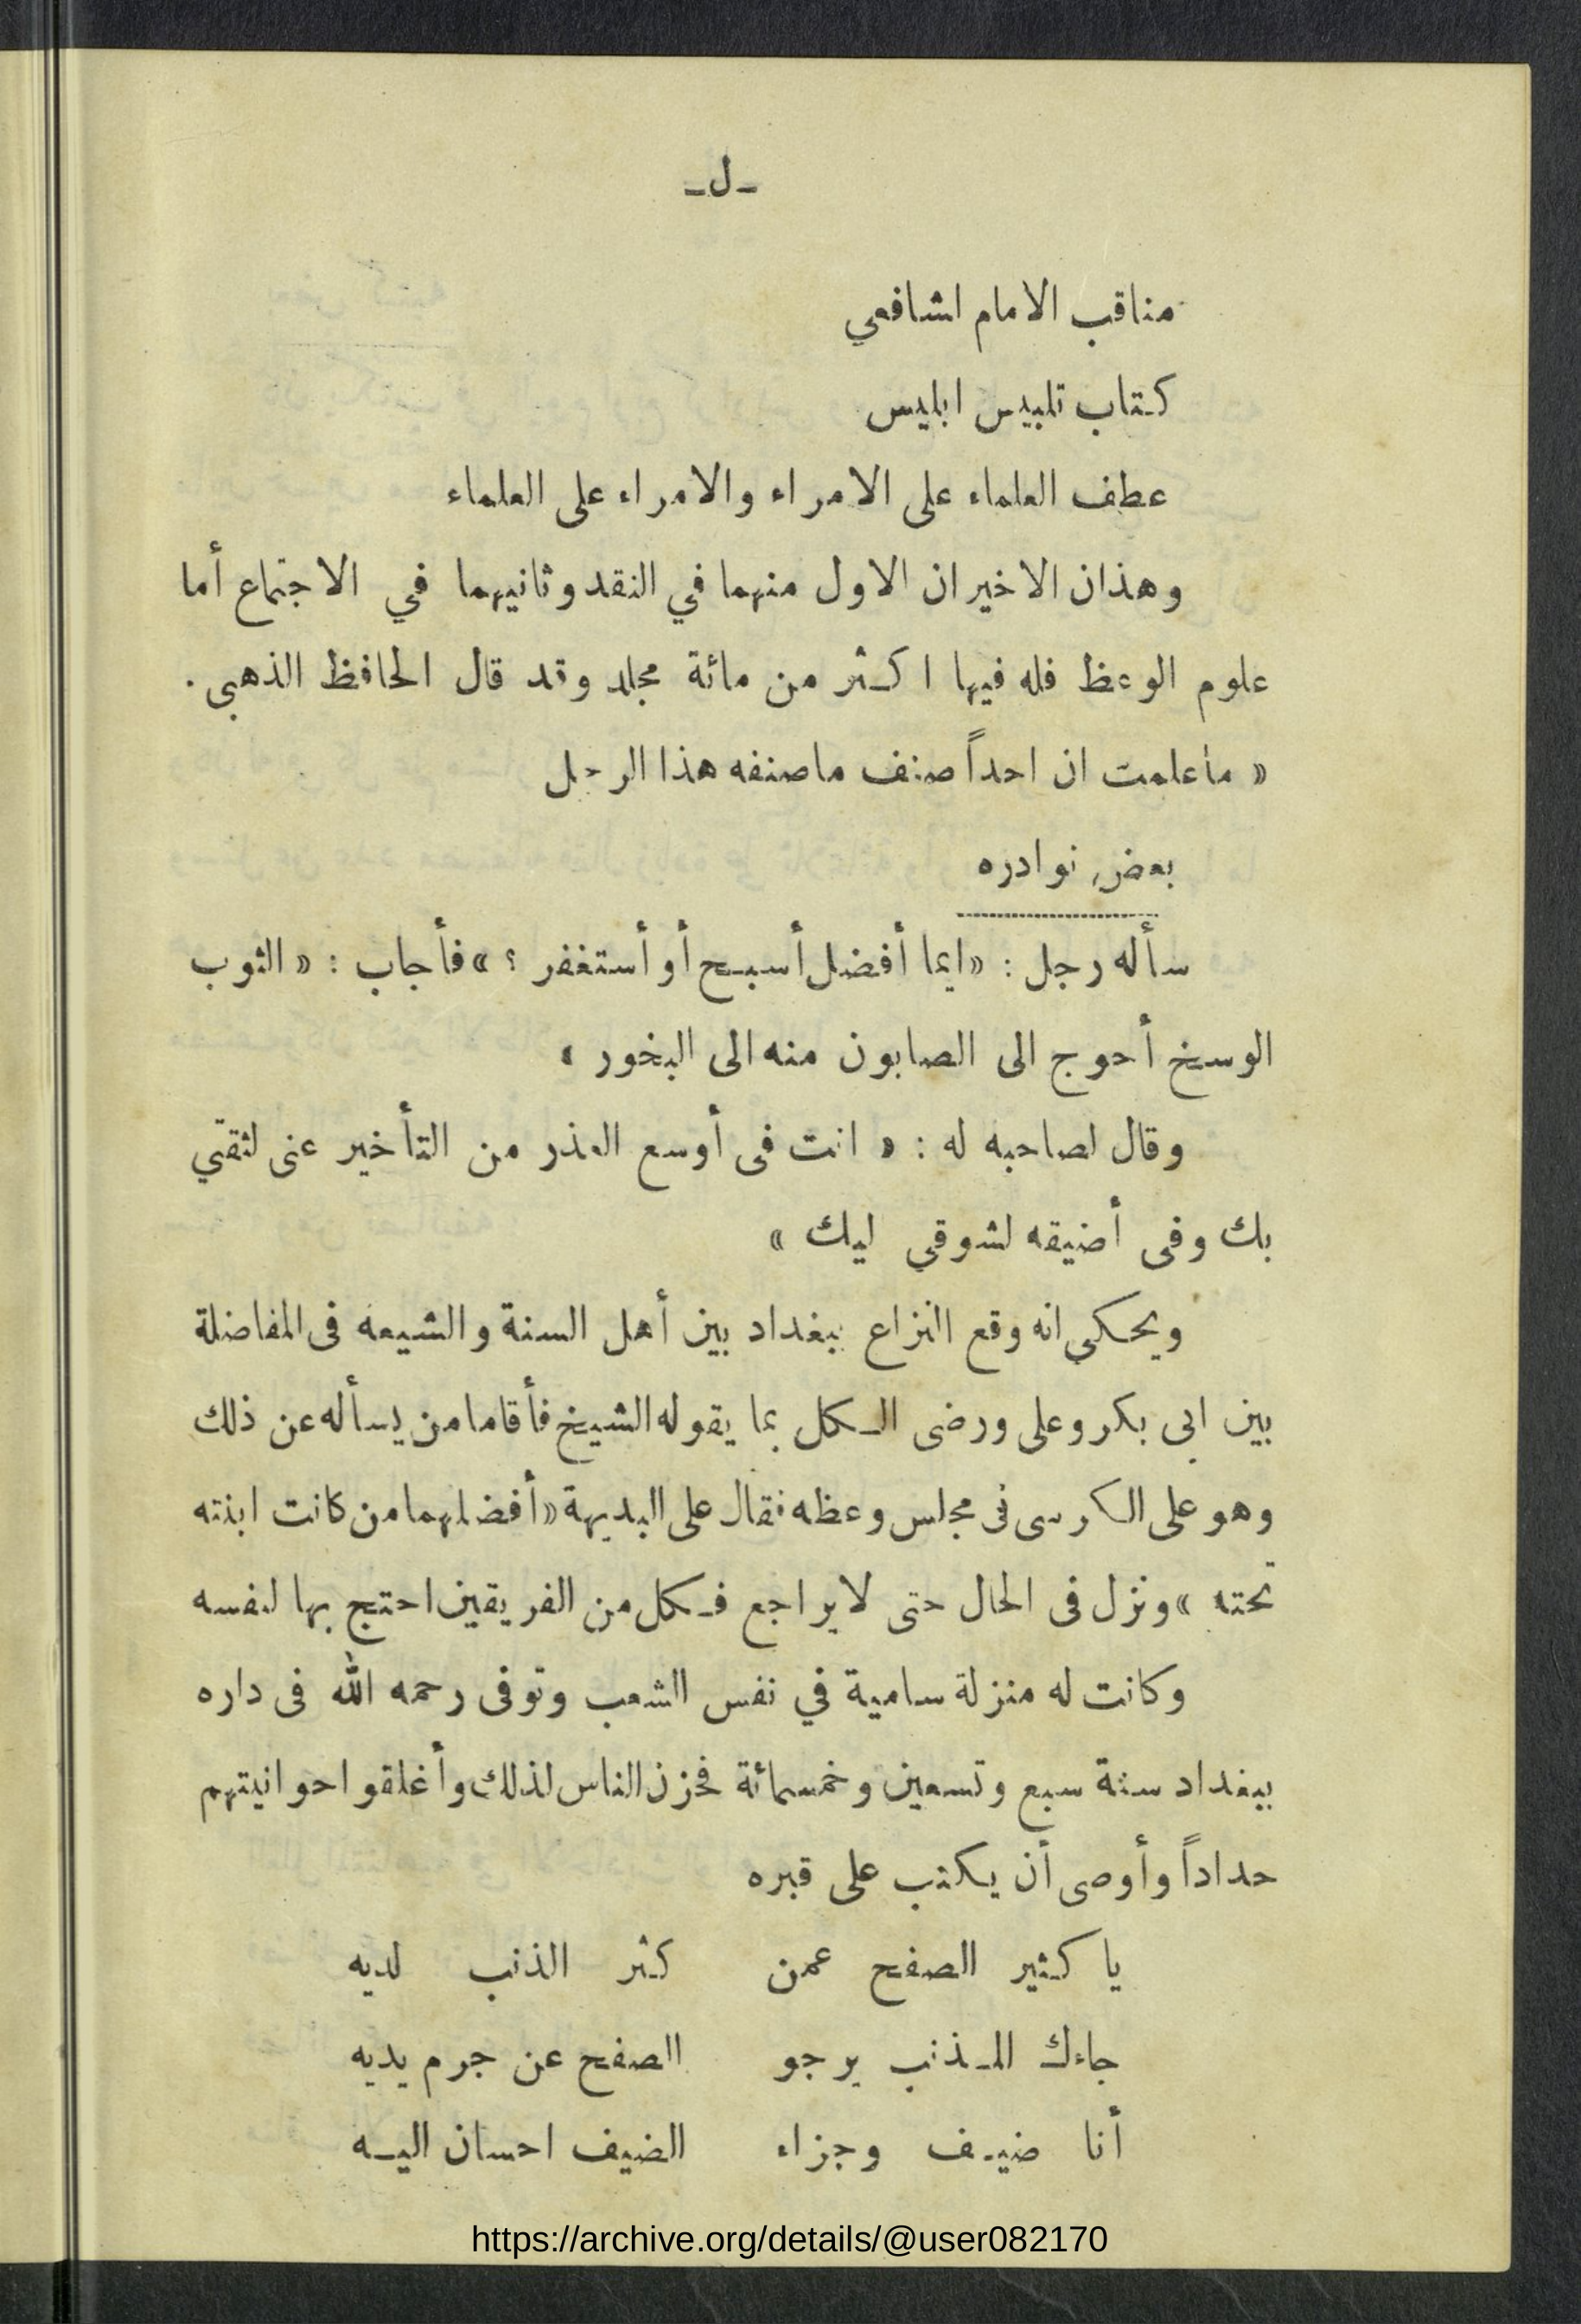 -ل-
مناقب الامام اشافعي
كتاب تلبيس ابليس
عطف العلماء على الامراء والامراء على العلماء
وهذان الاخيران الاول منهما في النقد وثانيهما في الاجتماع أما
علوم الوعظ فله فيها اكثر من مائة مجلد وقد قال الحافظ الذهبي .
« ماعلمت ان احداً صنف ماصنفه هذا الرجل
بعض نوادره
سأله رجل : «ايما أفضل أسبح أو أستغفر ؟ » فأجاب : « الثوب
الوسخ أحوج الى الصابون منه الى البخور »
وقال لصاحبه له : « انت فى أوسع العذر من التأخير عنى لثقتي
بك وفى أضيقه لشوقي ليك »
ويحكى انه وقع النزاع ببغداد بين أهل السنة والشيعه فى المفاضلة
بين ابى بكر وعلى ورضى الكل بما يقوله الشيخ فأقاما من يسأله عن ذلك
وهو على الكرسى فى مجلس وعظه فقال على البديهة «أفضلهما من كانت ابنته
تحته » ونزل فى الحال حتى لايراجع فكل من الفريقين احتج بها لنفسه
وكانت له منزلة سامية في نفس الشعب وتوفى رحمه الله فى داره
ببغداد سنة سبع وتسعين وخمسمائة فحزن الناس لذلك وأغلقوا حوانيتهم
حداداً وأوصى أن يكتب على قبره
يا كثير الصفح عمن كثر الذنب لديه
جاءك المذنب يرجو الصفح عن جرم يديه
أنا ضيف وجزاء الضيف احسان اليه
https://archive.org/details/@user082170